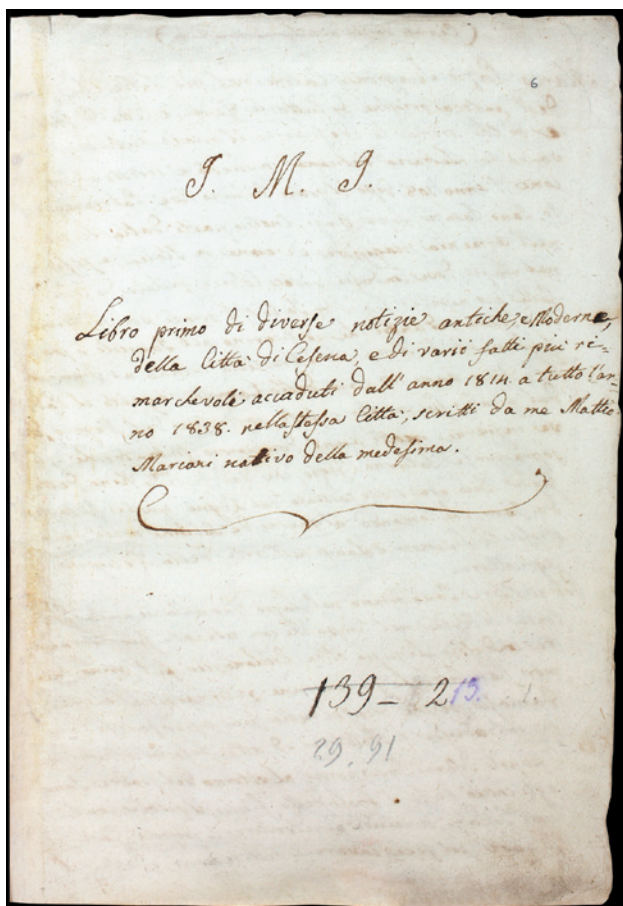 6
J. M. J.
Libro primo di diverse notizie antiche, e Moderne,
della Città di Cesena, e di varii fatti più ri=
marchevoli accaduti dall'anno 1814. a tutto l'an=
no 1838. nella stessa Città, scritti da me Mattia
Mariani nativo della medesima.
139 - 2
29. 91